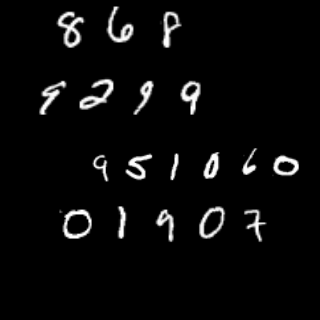 868
9299
951060
01907